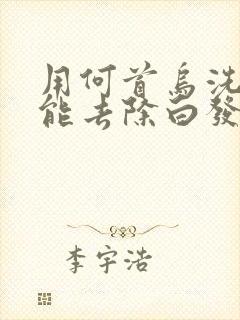 用何首烏洗
能去除白發
李宇浩